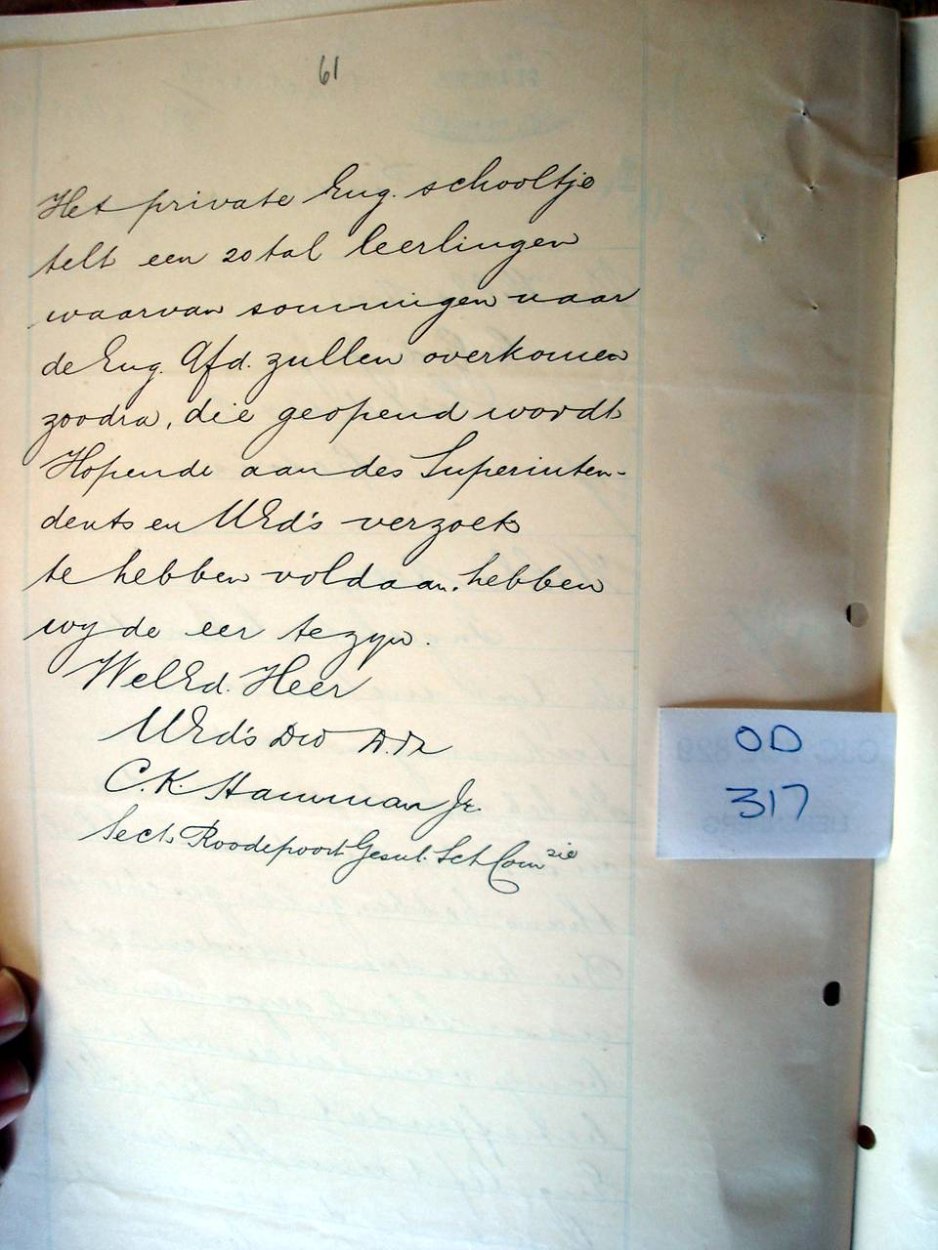 61
Het private Eng. schooltje
telt een 20tal leerlingen
waarvan sommigen naar
de Eng. Afd. zullen overkomen
zoodra, die geopend wordt
Hopende aan des Superinten-
dents en UEd's verzoek
te hebben voldaan. hebben
wy de eer te zyn.
WelEd. Heer
UEd's Dw D.Dr
C. K. Hamman Jr.
Sects Roodepoort Gesub. Sch Com zie
OD
317